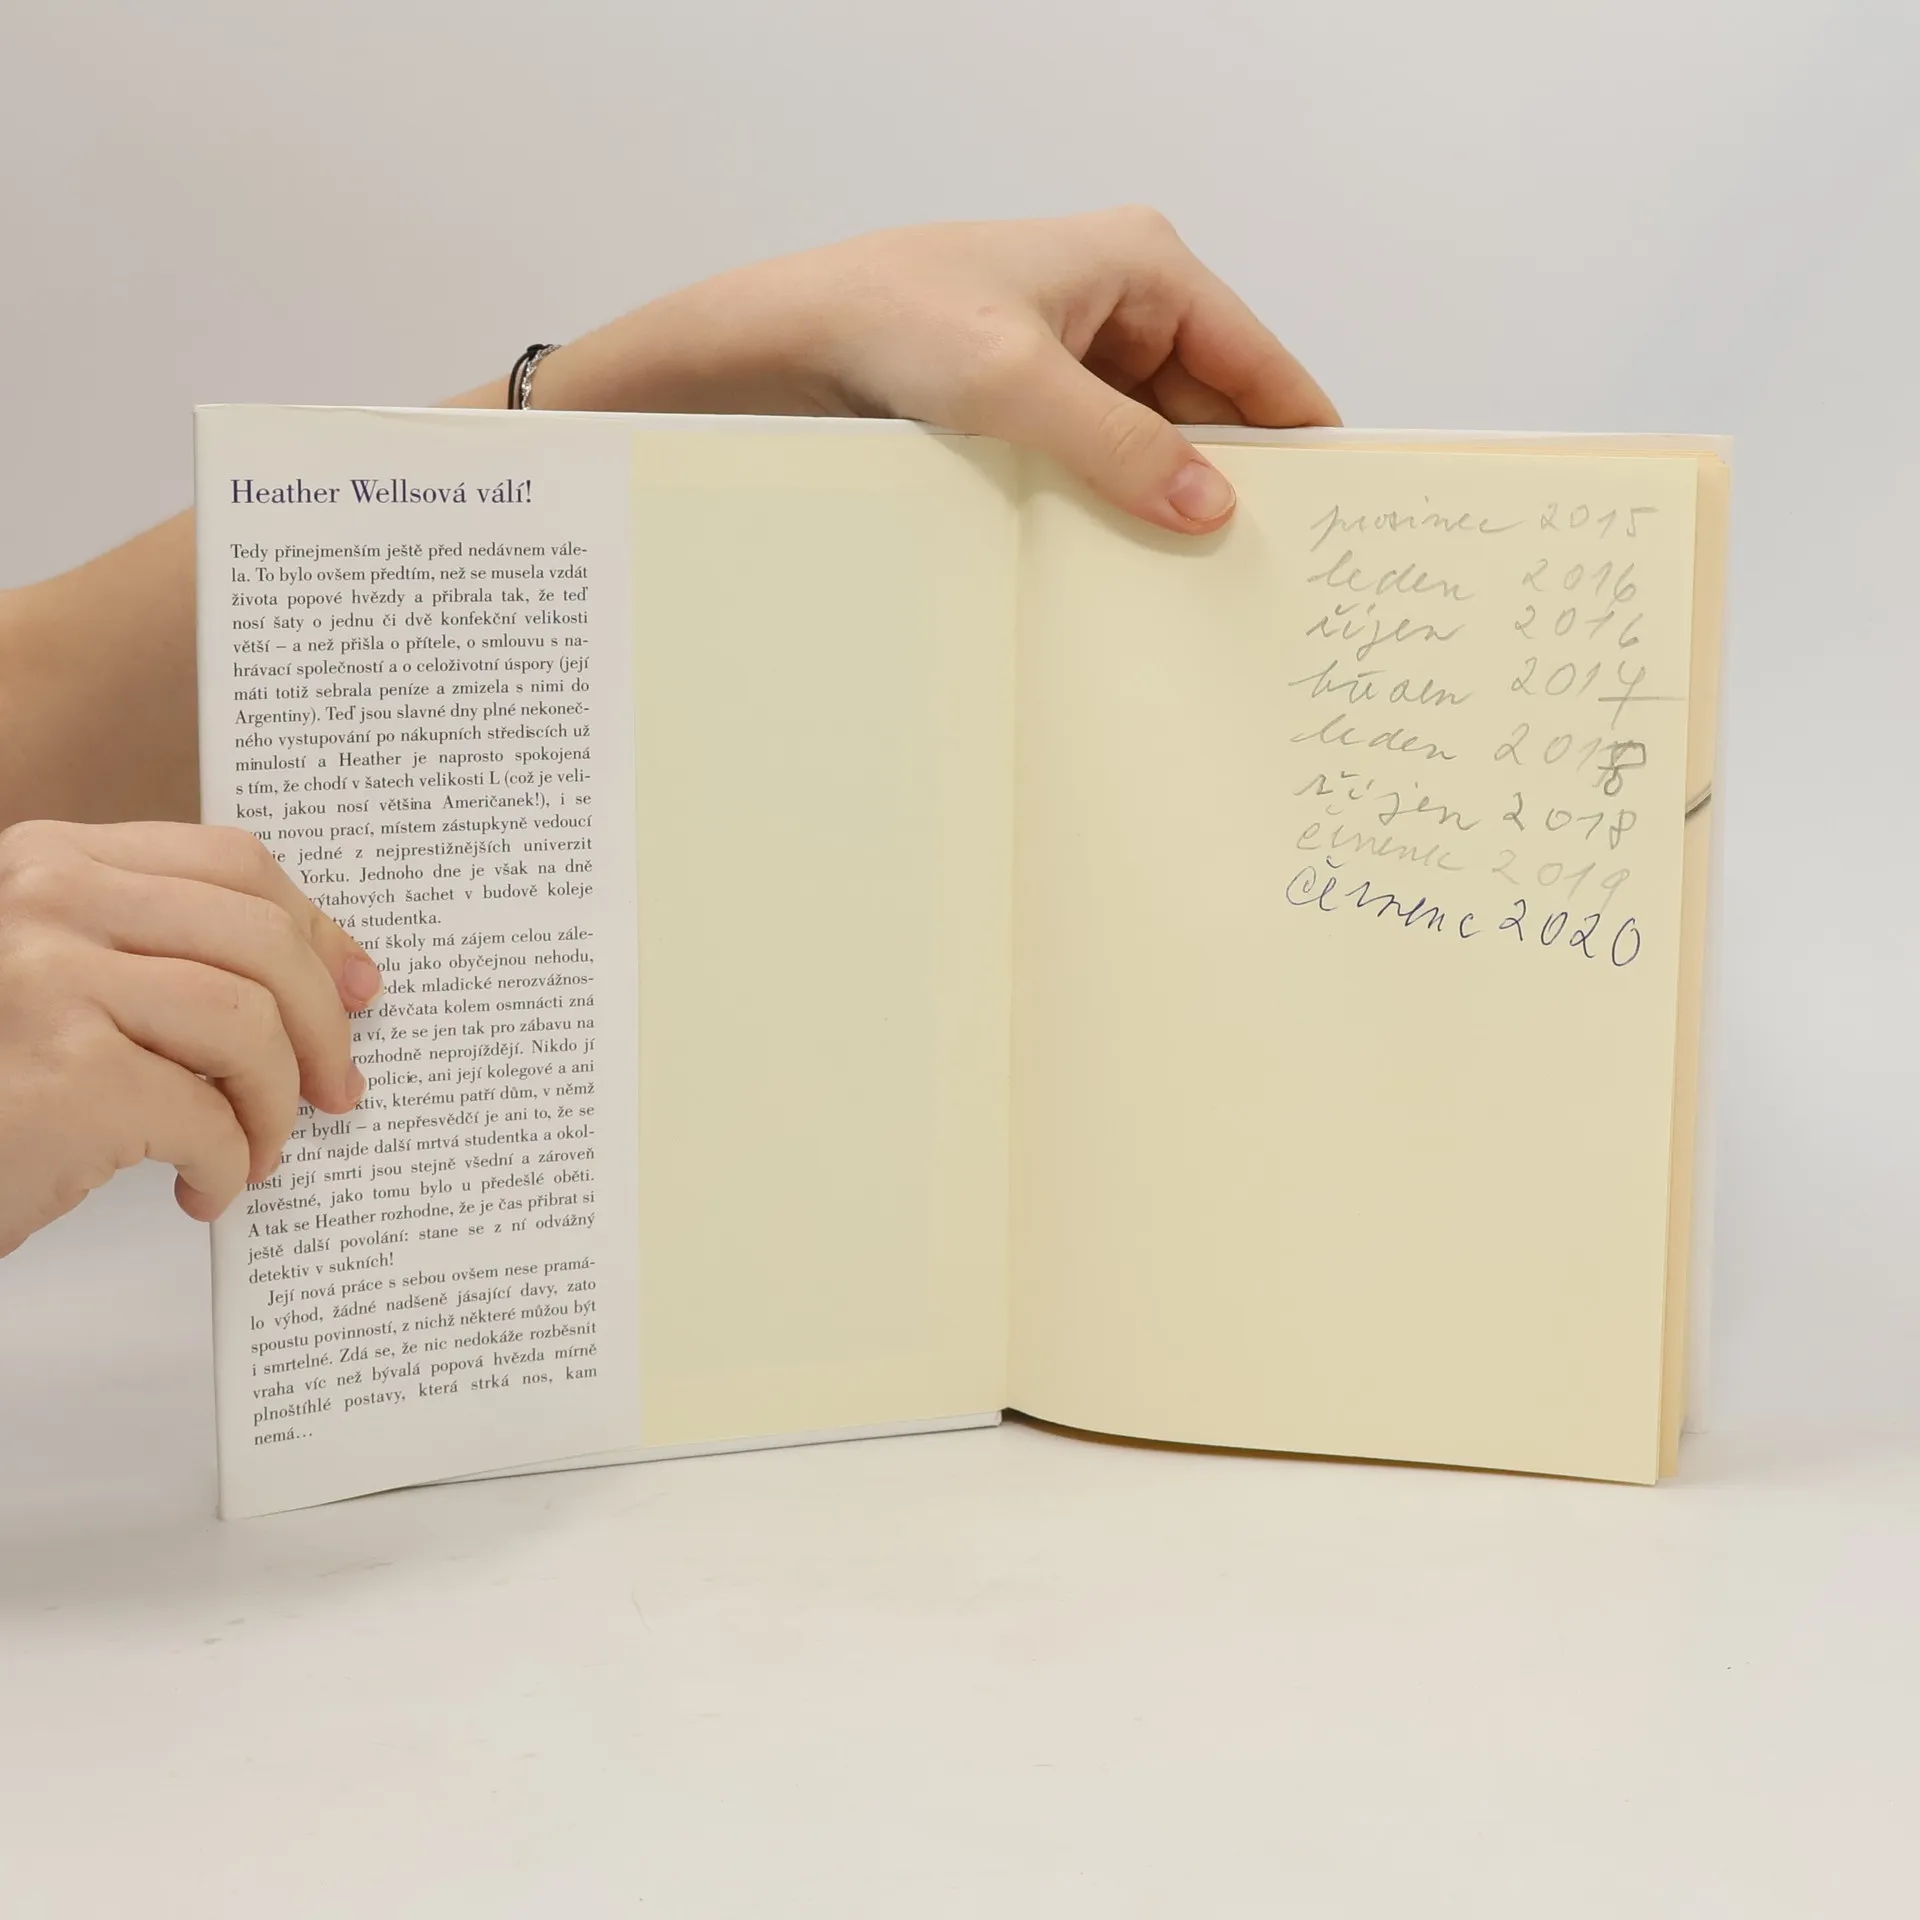 Heather Wellsová válí!
Tedy přinejmenším ještě před nedávnem vále-
la. To bylo ovšem předtím, než se musela vzdát
života popové hvězdy a přibrala tak, že teď
nosí šaty o jednu či dvě konfekční velikosti
větší – a než přišla o přítele, o smlouvu s na-
hrávací společností a o celoživotní úspory (její
máti totiž sebrala peníze a zmizela s nimi do
Argentiny). Teď jsou slavné dny plné nekoneč-
ného vystupování po nákupních střediscích už
minulostí a Heather je naprosto spokojená
s tím, že chodí v šatech velikosti L (což je veli-
kost, jakou nosí většina Američanek!), i se
ou novou prací, místem zástupkyně vedoucí
je jedné z nejprestižnějších univerzit
Yorku. Jednoho dne je však na dně
výtahových šachet v budově koleje
tvá studentka.
ení školy má zájem celou zále-
olu jako obyčejnou nehodu,
edek mladické nerozvážnos-
her děvčata kolem osmnácti zná
a ví, že se jen tak pro zábavu na
rozhodně neprojíždějí. Nikdo jí
policie, ani její kolegové a ani
my ktiv, kterému patří dům, v němž
er bydlí – a nepřesvědčí je ani to, že se
ár dní najde další mrtvá studentka a okol-
nosti její smrti jsou stejně všední a zároveň
zlověstné, jako tomu bylo u předešlé oběti.
A tak se Heather rozhodne, že je čas přibrat si
ještě další povolání: stane se z ní odvážný
detektiv v sukních!
Její nová práce s sebou ovšem nese pramá-
lo výhod, žádné nadšeně jásající davy, zato
spoustu povinností, z nichž některé můžou být
i smrtelné. Zdá se, že nic nedokáže rozběsnit
vraha víc než bývalá popová hvězda mírně
plnoštíhlé postavy, která strká nos, kam
nemá...
prosinec 2015
leden 2016
říjen 2016
2017
leden 2018
říjen 2018
2019
červenec 2020